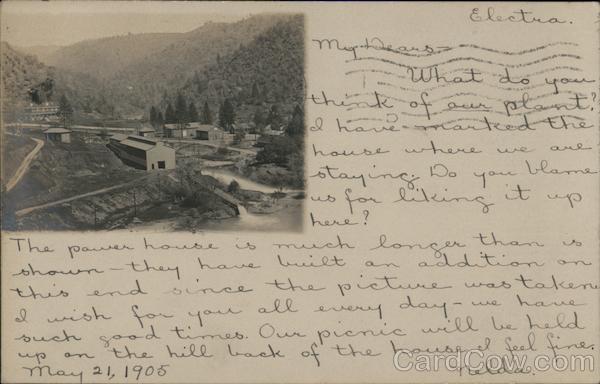 Electra.
My Dears—
What do you
think of our plant?
I have marked the
house where we are
staying. Do you blame
us for liking it up
here?
The power house is much longer than is
shown—they have built an addition on
this end since the picture was taken
I wish for you all every day—we have
such good times. Our picnic will be held
up on the hill back of the house. I feel fine.
May 21, 1905
CardCow.com